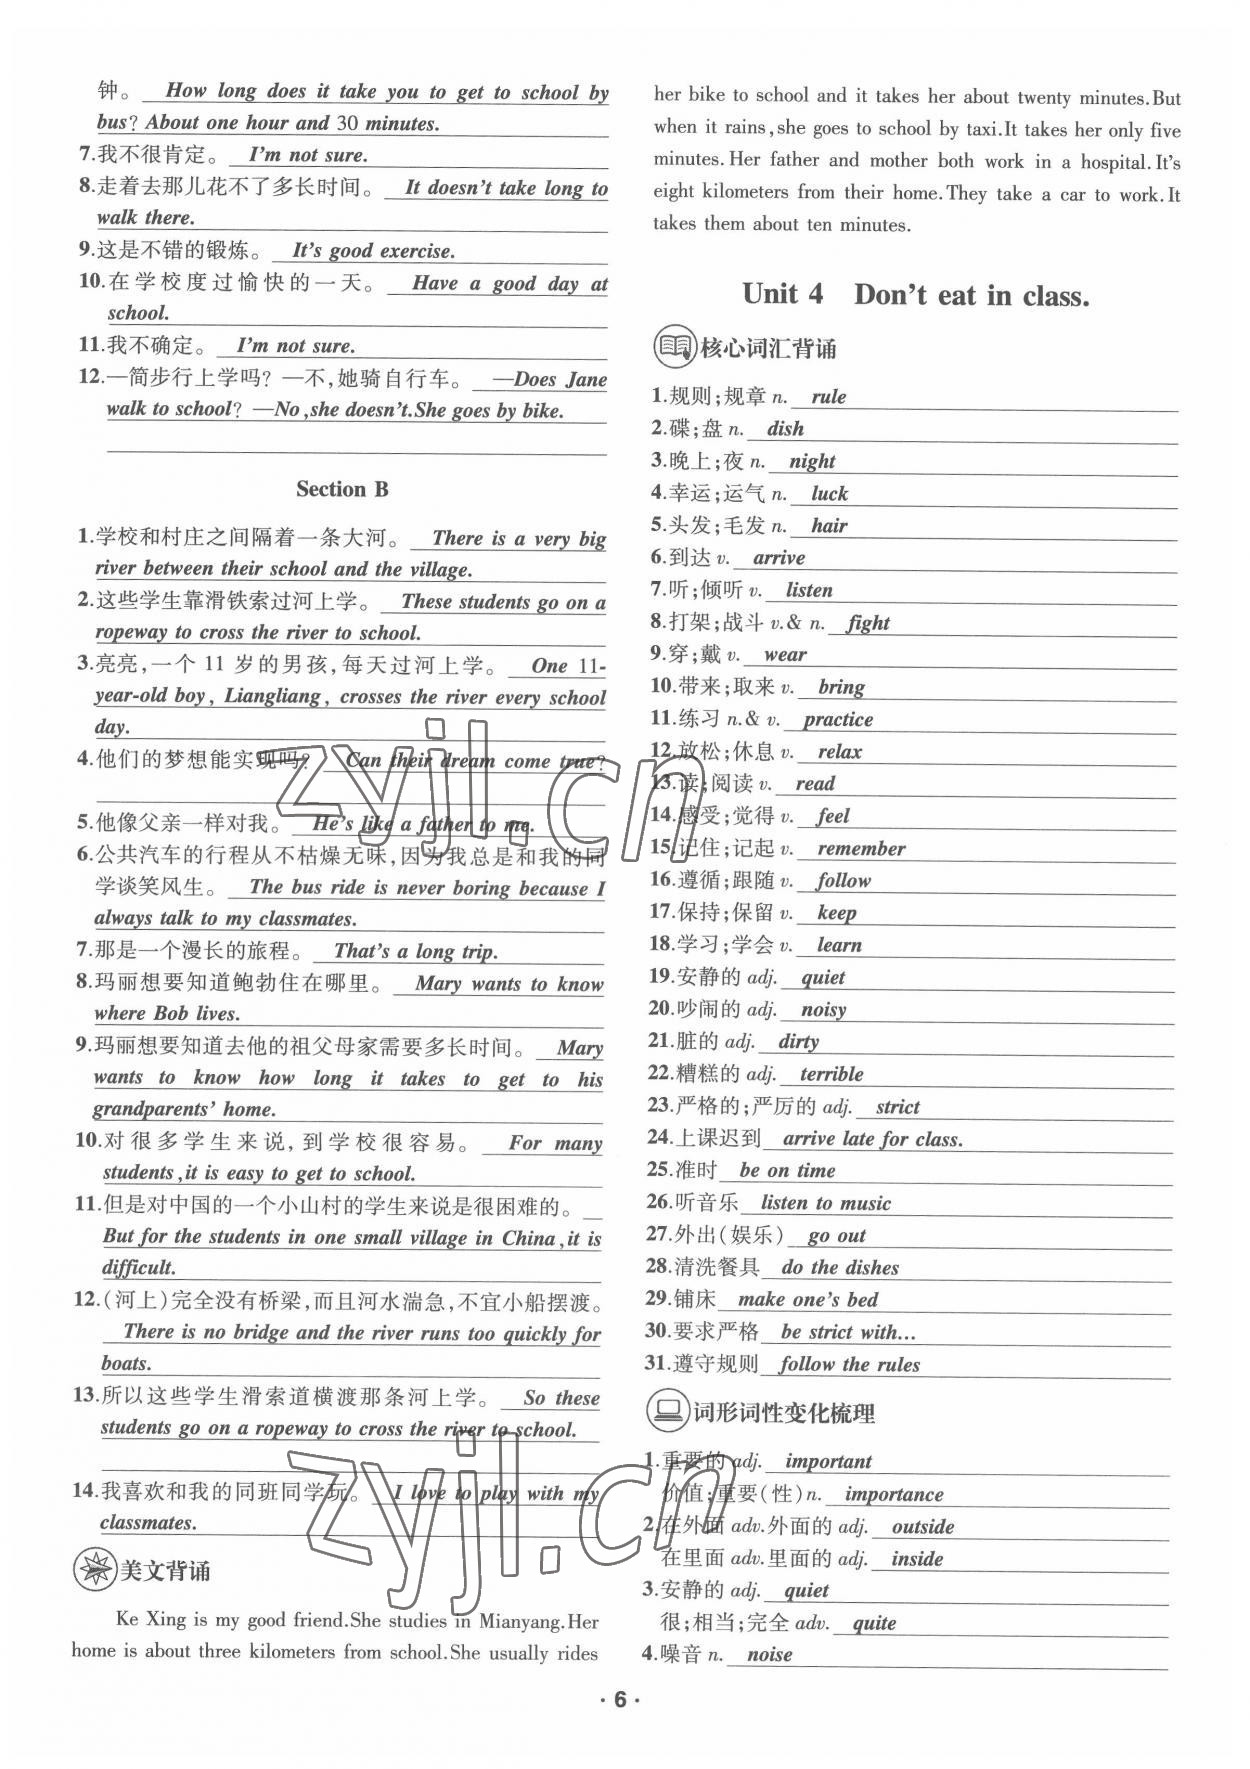 钟。 How long does it take you to get to school by
bus? About one hour and 30 minutes.
7.我不很肯定。 I'm not sure.
8.走着去那儿花不了多长时间。 It doesn't take long to
walk there.
9.这是不错的锻炼。 It's good exercise.
10.在学校度过愉快的一天。 Have a good day at
school.
11.我不确定。 I'm not sure.
12.—简步行上学吗? —不,她骑自行车。 —Does Jane
walk to school? —No,she doesn't.She goes by bike.
Section B
1.学校和村庄之间隔着一条大河。 There is a very big
river between their school and the village.
2.这些学生靠滑铁索过河上学。 These students go on a
ropeway to cross the river to school.
3.亮亮,一个 11 岁的男孩,每天过河上学。 One 11-
year-old boy, Liangliang, crosses the river every school
day.
4.他们的梦想能实现吗? Can their dream come true?
5.他像父亲一样对我。 He's like a father to me.
6.公共汽车的行程从不枯燥无味,因为我总是和我的同
学谈笑风生。 The bus ride is never boring because I
always talk to my classmates.
7.那是一个漫长的旅程。 That's a long trip.
8.玛丽想要知道鲍勃住在哪里。 Mary wants to know
where Bob lives.
9.玛丽想要知道去他的祖父母家需要多长时间。 Mary
wants to know how long it takes to get to his
grandparents' home.
10.对很多学生来说,到学校很容易。 For many
students,it is easy to get to school.
11.但是对中国的一个小山村的学生来说是很困难的。
But for the students in one small village in China,it is
difficult.
12.(河上)完全没有桥梁,而且河水湍急,不宜小船摆渡。
There is no bridge and the river runs too quickly for
boats.
13.所以这些学生滑索道横渡那条河上学。 So these
students go on a ropeway to cross the river to school.
14.我喜欢和我的同班同学玩。 I love to play with my
classmates.
美文背诵
Ke Xing is my good friend.She studies in Mianyang.Her
home is about three kilometers from school.She usually rides
her bike to school and it takes her about twenty minutes.But
when it rains,she goes to school by taxi.It takes her only five
minutes.Her father and mother both work in a hospital.It's
eight kilometers from their home.They take a car to work.It
takes them about ten minutes.
Unit 4 Don't eat in class.
核心词汇背诵
1.规则;规章 n. rule
2.碟;盘 n. dish
3.晚上;夜 n. night
4.幸运;运气 n. luck
5.头发;毛发 n. hair
6.到达 v. arrive
7.听;倾听 v. listen
8.打架;战斗 v.& n. fight
9.穿;戴 v. wear
10.带来;取来 v. bring
11.练习 n.& v. practice
12.放松;休息 v. relax
13.读;阅读 v. read
14.感受;觉得 v. feel
15.记住;记起 v. remember
16.遵循;跟随 v. follow
17.保持;保留 v. keep
18.学习;学会 v. learn
19.安静的 adj. quiet
20.吵闹的 adj. noisy
21.脏的 adj. dirty
22.糟糕的 adj. terrible
23.严格的;严厉的 adj. strict
24.上课迟到 arrive late for class.
25.准时 be on time
26.听音乐 listen to music
27.外出(娱乐) go out
28.清洗餐具 do the dishes
29.铺床 make one's bed
30.要求严格 be strict with...
31.遵守规则 follow the rules
词形词性变化梳理
1.重要的 adj. important
价值;重要(性)n. importance
2.在外面 adv.外面的 adj. outside
在里面 adv.里面的 adj. inside
3.安静的 adj. quiet
很;相当;完全 adv. quite
4.噪音 n. noise
· 6 ·
zyjl.cn
zyjl.cn